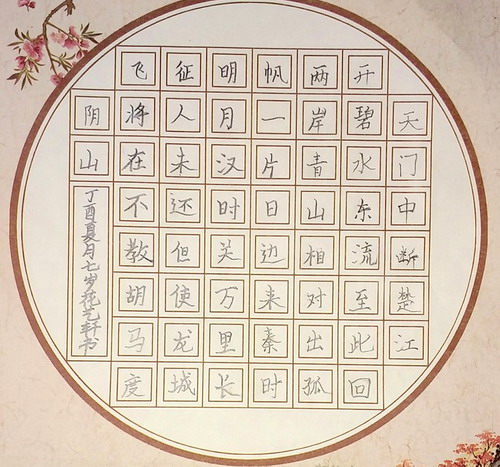 天门中断楚江
开碧水东流至此回
两岸青山相对出孤
帆一片日边来秦时
明月汉时关万里长
征人未还但使龙城
飞将在不教胡马度
阴山
丁酉夏月七岁花艺轩书